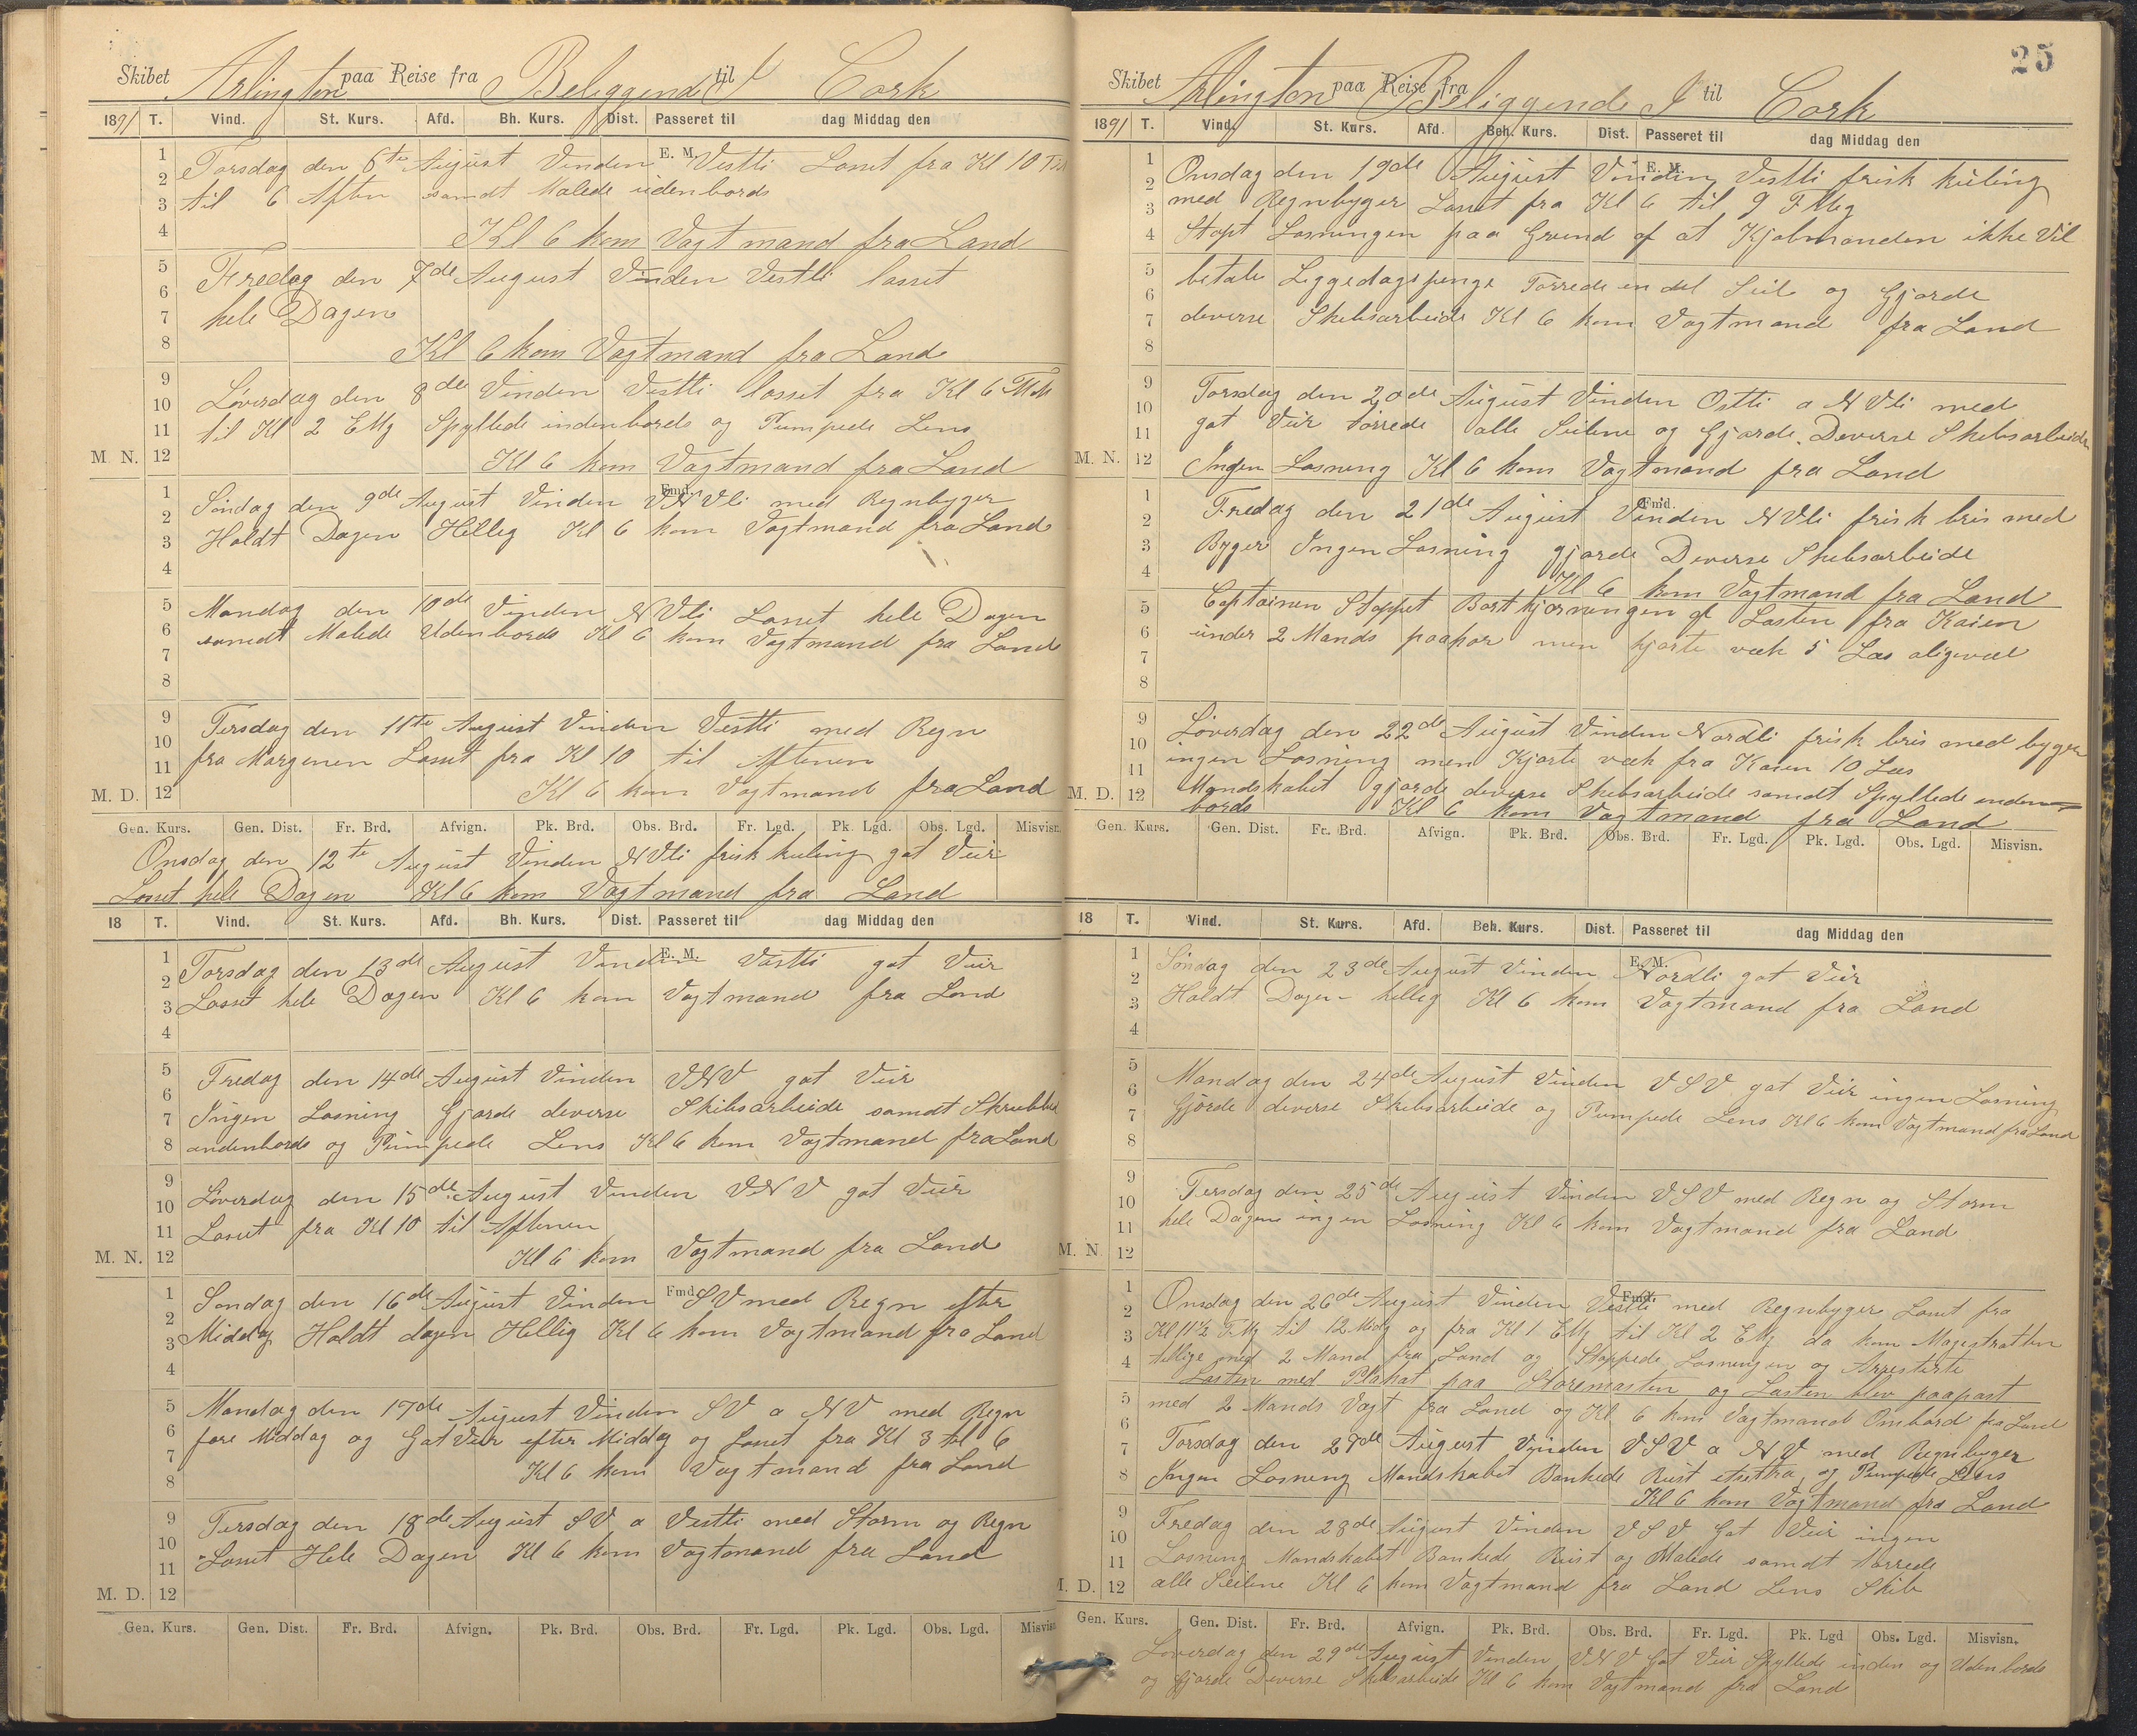 Skibet Arlington paa Reise fra Beliggend I til Cork
1891 T. Vind. St. Kurs. Afd. Bh. Kurs. Dist. Passeret til dag Middag den
E. M.
Torsdag den 6te August Vinden Vestli Losset fra Kl 10
til 6 Aften samdt Malede udenbords
Kl 6 kom Vagtmand fra Land
Fredag den 7de August Vinden Vestli losset
hele Dagen
Kl 6 kom Vagtmand fra Land
Löverdag den 8de Vinden Vestli losset fra Kl 6
til Kl 2 EMg Spyllede indenbords og Pumpede Lens
M. N. Kl 6 kom Vagtmand fra Land
Fmd.
Söndag den 9de August Vinden VNVli med Regnbyger
Holdt Dagen Hellig Kl 6 kom Vagtmand fra Land
Mandag den 10de Vinden NVli Losset hele Dagen
samdt Malede Udenbords Kl 6 kom Vagtmand fra Land
Tirsdag den 11te August Vinden Vestli med Regn
fra Morgenen Losset fra Kl 10 til Aftenen
M. D. Kl 6 kom Vagtmand fra Land
Gen. Kurs. Gen. Dist. Fr. Brd. Afvign. Pk. Brd. Obs. Brd. Fr. Lgd. Pk. Lgd. Obs. Lgd. Misvisn.
Onsdag den 12te August Vinden NVli frisk kuling gat Veir
Losset hele Dagen Kl 6 kom Vagtmand fra Land
18 T. Vind. St. Kurs. Afd. Bh. Kurs. Dist. Passeret til dag Middag den
E. M.
Torsdag den 13de August Vinden Vestli gat Veir
Losset hele Dagen Kl 6 kom Vagtmand fra Land
Fredag den 14de August Vinden VNV gat Veir
Ingen Losning Gjorde deverse Skibsarbeide samdt Skrubbed
indenbords og Pumpede Lens Kl 6 kom Vagtmand fra Land
Löverdag den 15de August Vinden VNV gat Veir
Losset fra Kl 10 til Aftenen
M. N. Kl 6 kom Vagtmand fra Land
Fmd.
Sondag den 16de August Vinden SV med Regn efter
Middag Holdt dagen Hellig Kl 6 kom Vagtmand fra Land
Mandag den 17de August Vinden SV a NV med Regn
fore Middag og Gat Veir efter Middag og Losset fra Kl 3 til 6
Kl 6 kom Vagtmand fra Land
Tirsdag den 18de August SV a Vestli med Storm og Regn
Losset Hele Dagen Kl 6 kom Vagtmand fra Land
M. D.
Gen. Kurs. Gen. Dist. Fr. Brd. Afvign. Pk. Brd. Obs. Brd. Fr. Lgd. Pk. Lgd. Obs. Lgd. Misvisn
25
Skibet Arlington paa Reise fra Beliggende I til Cork
1891 T. Vind. St. Kurs. Afd. Beh. Kurs. Dist. Passeret til dag Middag den
E. M.
Onsdag den 19de August Vinden Vestli frisk kuling
med Regnbyger Losset fra Kl 6 til 9 FMg
Stopt Losningen paa Grund af at Kjobmanden ikke vil
betale Liggedagspenge Torrede en del Seil og Gjorde
deverse Skibsarbeide Kl 6 kom Vagtmand fra Land
Torsdag den 20de August Vinden Ostli a NVli med
gat Veir törrede alle Seilene og Gjorde Deverse Skibsarbeide
M. N. Ingen Losning Kl 6 kom Vagtmand fra Land
Fmd.
Fredag den 21de August Vinden NVli frisk bris med
Byger Ingen Losning gjorde Deverse Skibsarbeide
Kl 6 kom Vagtmand fra Land
Captainen Stoppet Bortkjörningen af Lasten fra Kaien
under 2 Mands paapas men kjörte væk 5 Læs aligevæl
Löverdag den 22de August Vinden Nordli frisk bris med byger
ingen Losning men Kjörte væk fra Kaien 10 Læs
M. D. Mandskabet gjorde deverse Skibsarbeide samdt Spyllede inden=
bords Kl 6 kom Vagtmand fra Land
Gen. Kurs. Gen. Dist. Fr. Brd. Afvign. Pk. Brd. Obs. Brd. Fr. Lgd. Pk. Lgd. Obs. Lgd. Misvisn.
18 T. Vind. St. Kurs. Afd. Beh. Kurs. Dist. Passeret til dag Middag den
E. M.
Söndag den 23de August Vinden Nordli gat Veir
Holdt Dagen hellig Kl 6 kom Vagtmand fra Land
Mandag den 24de August Vinden VSV gat Veir ingen Losning
Gjörde deverse Skibsarbeide og Pumpede Lens Kl 6 kom Vagtmand fra Land
Tirsdag den 25de August Vinden VSV med Regn og Storm
hele Dagen ingen Losning Kl 6 kom Vagtmand fra Land
M. N.
Fmd.
Onsdag den 26de August Vinden Vestli med Regnbyger Losset fra
Kl 11½ FMg til 12 Midg og fra Kl 1 EMg til Kl 2 EMg da kom Magestratten
tillige med 2 Mand fra Land og Stoppede Losningen og Arresterte
Lasten med Plakat paa Storemasten og Lasten blev paapast
med 2 Mands Vagt fra Land og Kl 6 kom Vagtmand Ombord fra Land
Torsdag den 27de August Vinden VSV a NV med Regnbyger
Ingen Losning Mandskabet Bankede Rust og Pumpede Lens
Kl 6 kom Vagtmand fra Land
Fredag den 28de August Vinden VSV Gat Veir ingen
Losning Mandskabet Bankede Rust og Malede samdt törrede
M. D. alle Seilene Kl 6 kom Vagtmand fra Land Lens Skib
Gen. Kurs. Gen. Dist. Fr. Brd. Afvign. Pk. Brd. Obs. Brd. Fr. Lgd. Pk. Lgd Obs. Lgd. Misvisn.
Loverdag den 29de August Vinden VNV Gat Veir Spyllede inden og Udenbords
og Gjorde Deverse Skibsarbeide Kl 6 kom Vagtmand fra Land